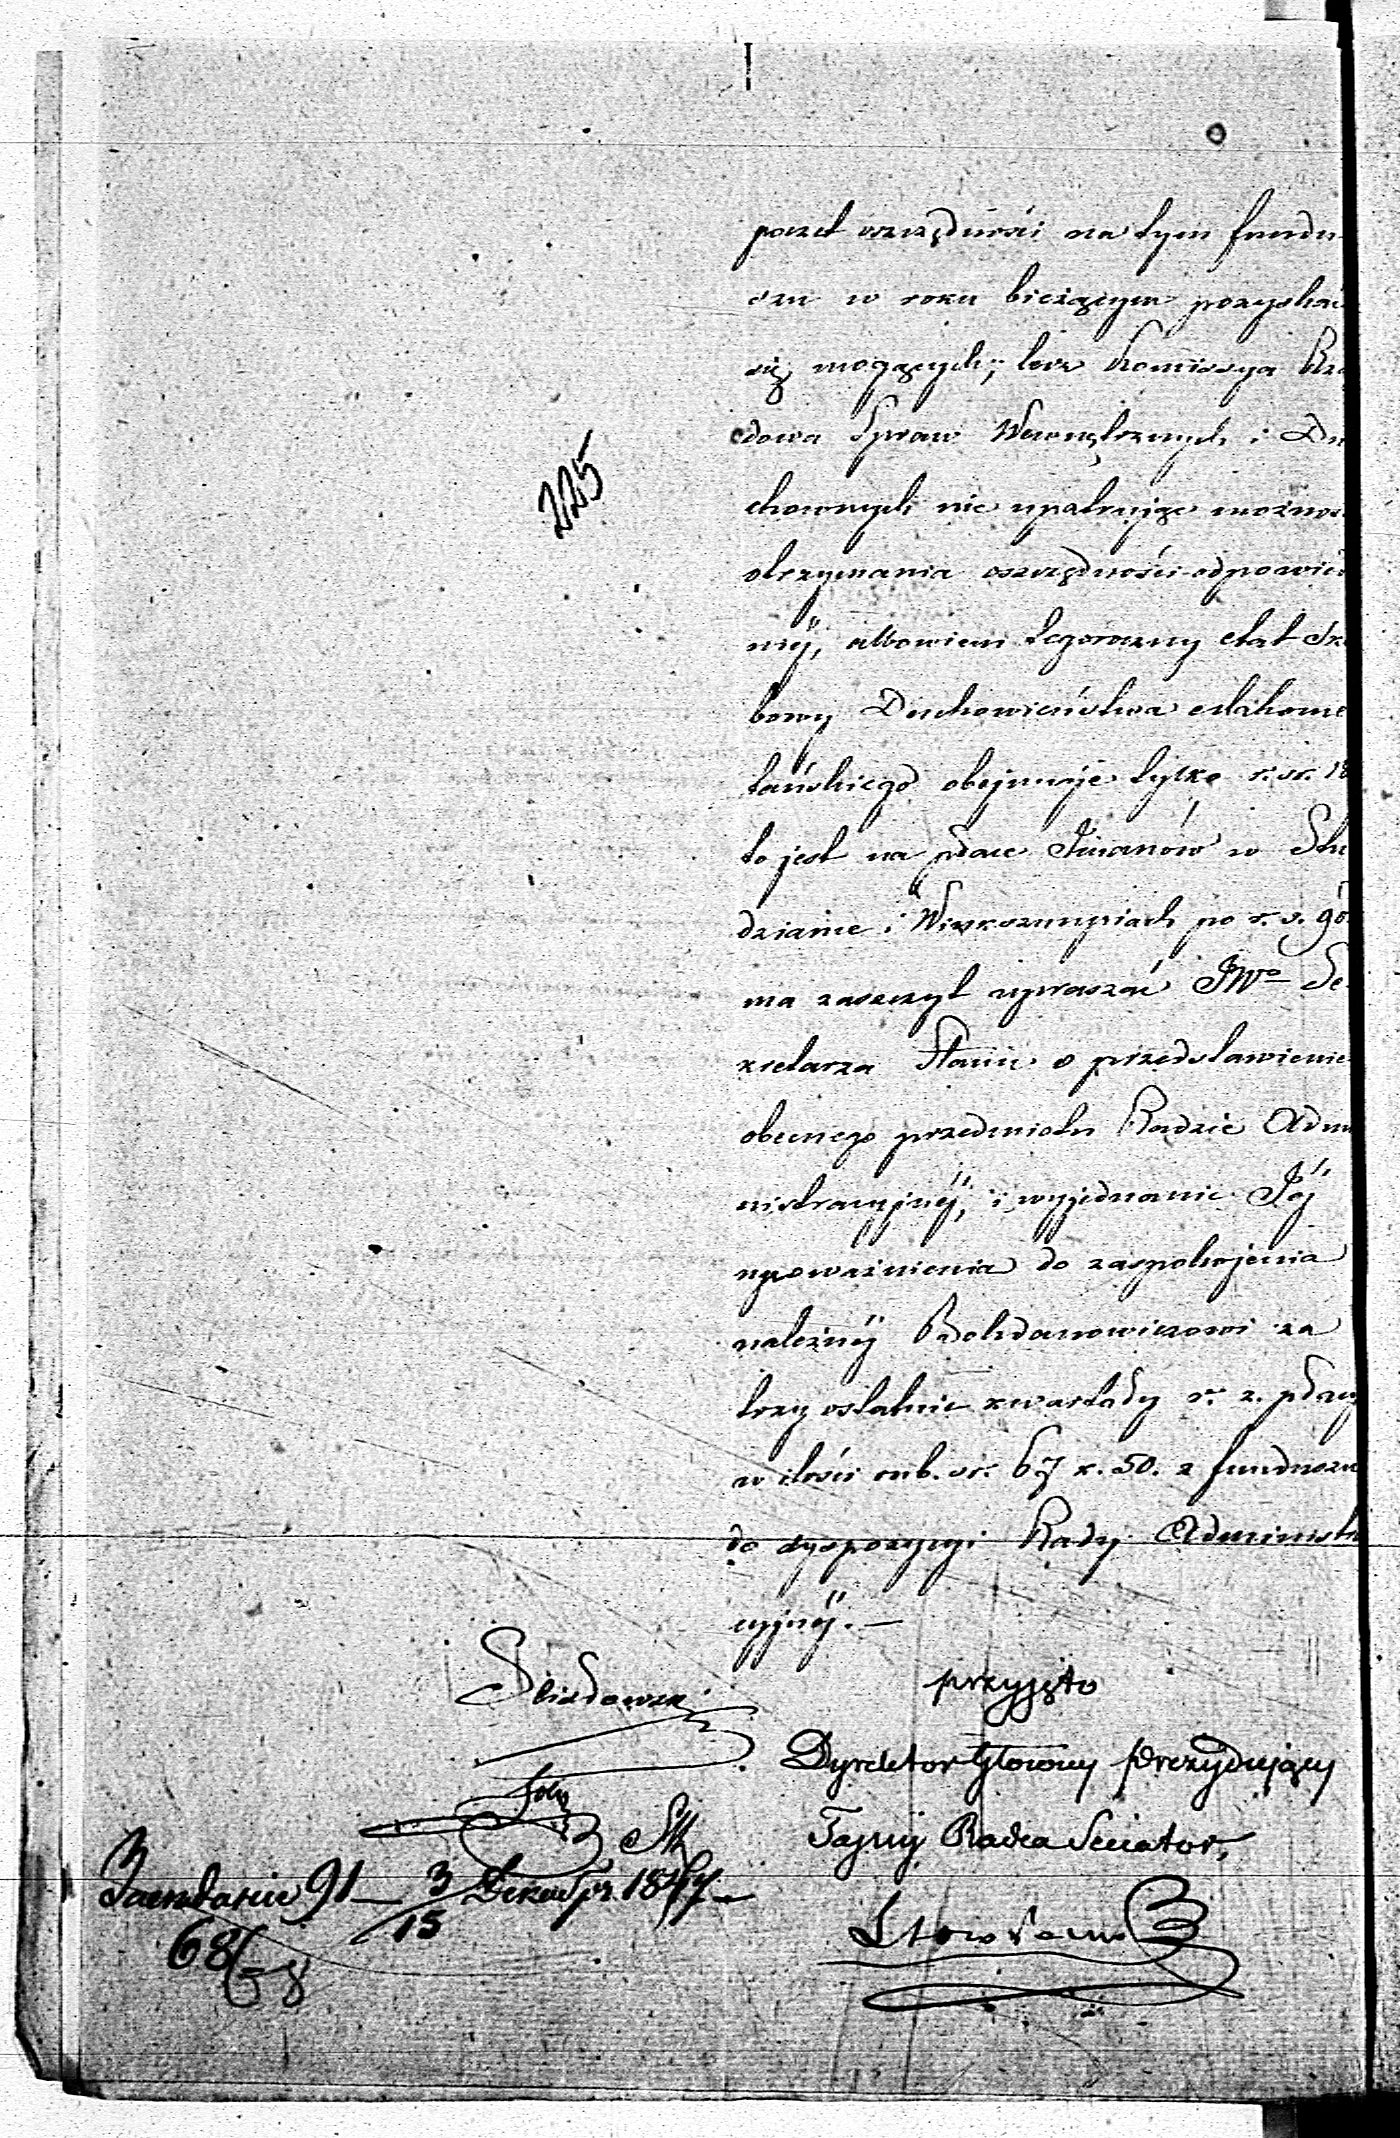 225
poczet oszczędności na tym fundu-
szu w roku bieżącym pozyskać
się mogących; lecz Kommissya Rzą
dowa Spraw Wewnętrznych i Du
chownych nie upatrując możnoś
otrzymania oszczędności odpowied
niéj, albowiem tegoroczny etat Skar
bowy Duchowieństwa Mahome
tańskiego obejmuje tylko r. sr. 18
to jest na płace Imanów w Stu
dziance i Winksznupiach po r. s. 90.
ma zaszczyt upraszać JWo Se
kretarza Stanu o przedstawienie
obecnego przedmiotu Radzie Admi
nistracyjnéj, i wyjednanie Jéj
upoważnienia do zaspokojenia
należnéj Bohdanowiczowi za
trzy ostatnie kwartały r. z. płacy
w ilości rub. sr. 67 k. 50. z funduszu
do dyspozycyi Rady Administra
cyjnéj. —
przyjęto
Dyrektor Główny Prezydujący
Tajny Radca Senator,
3/15 1847
68